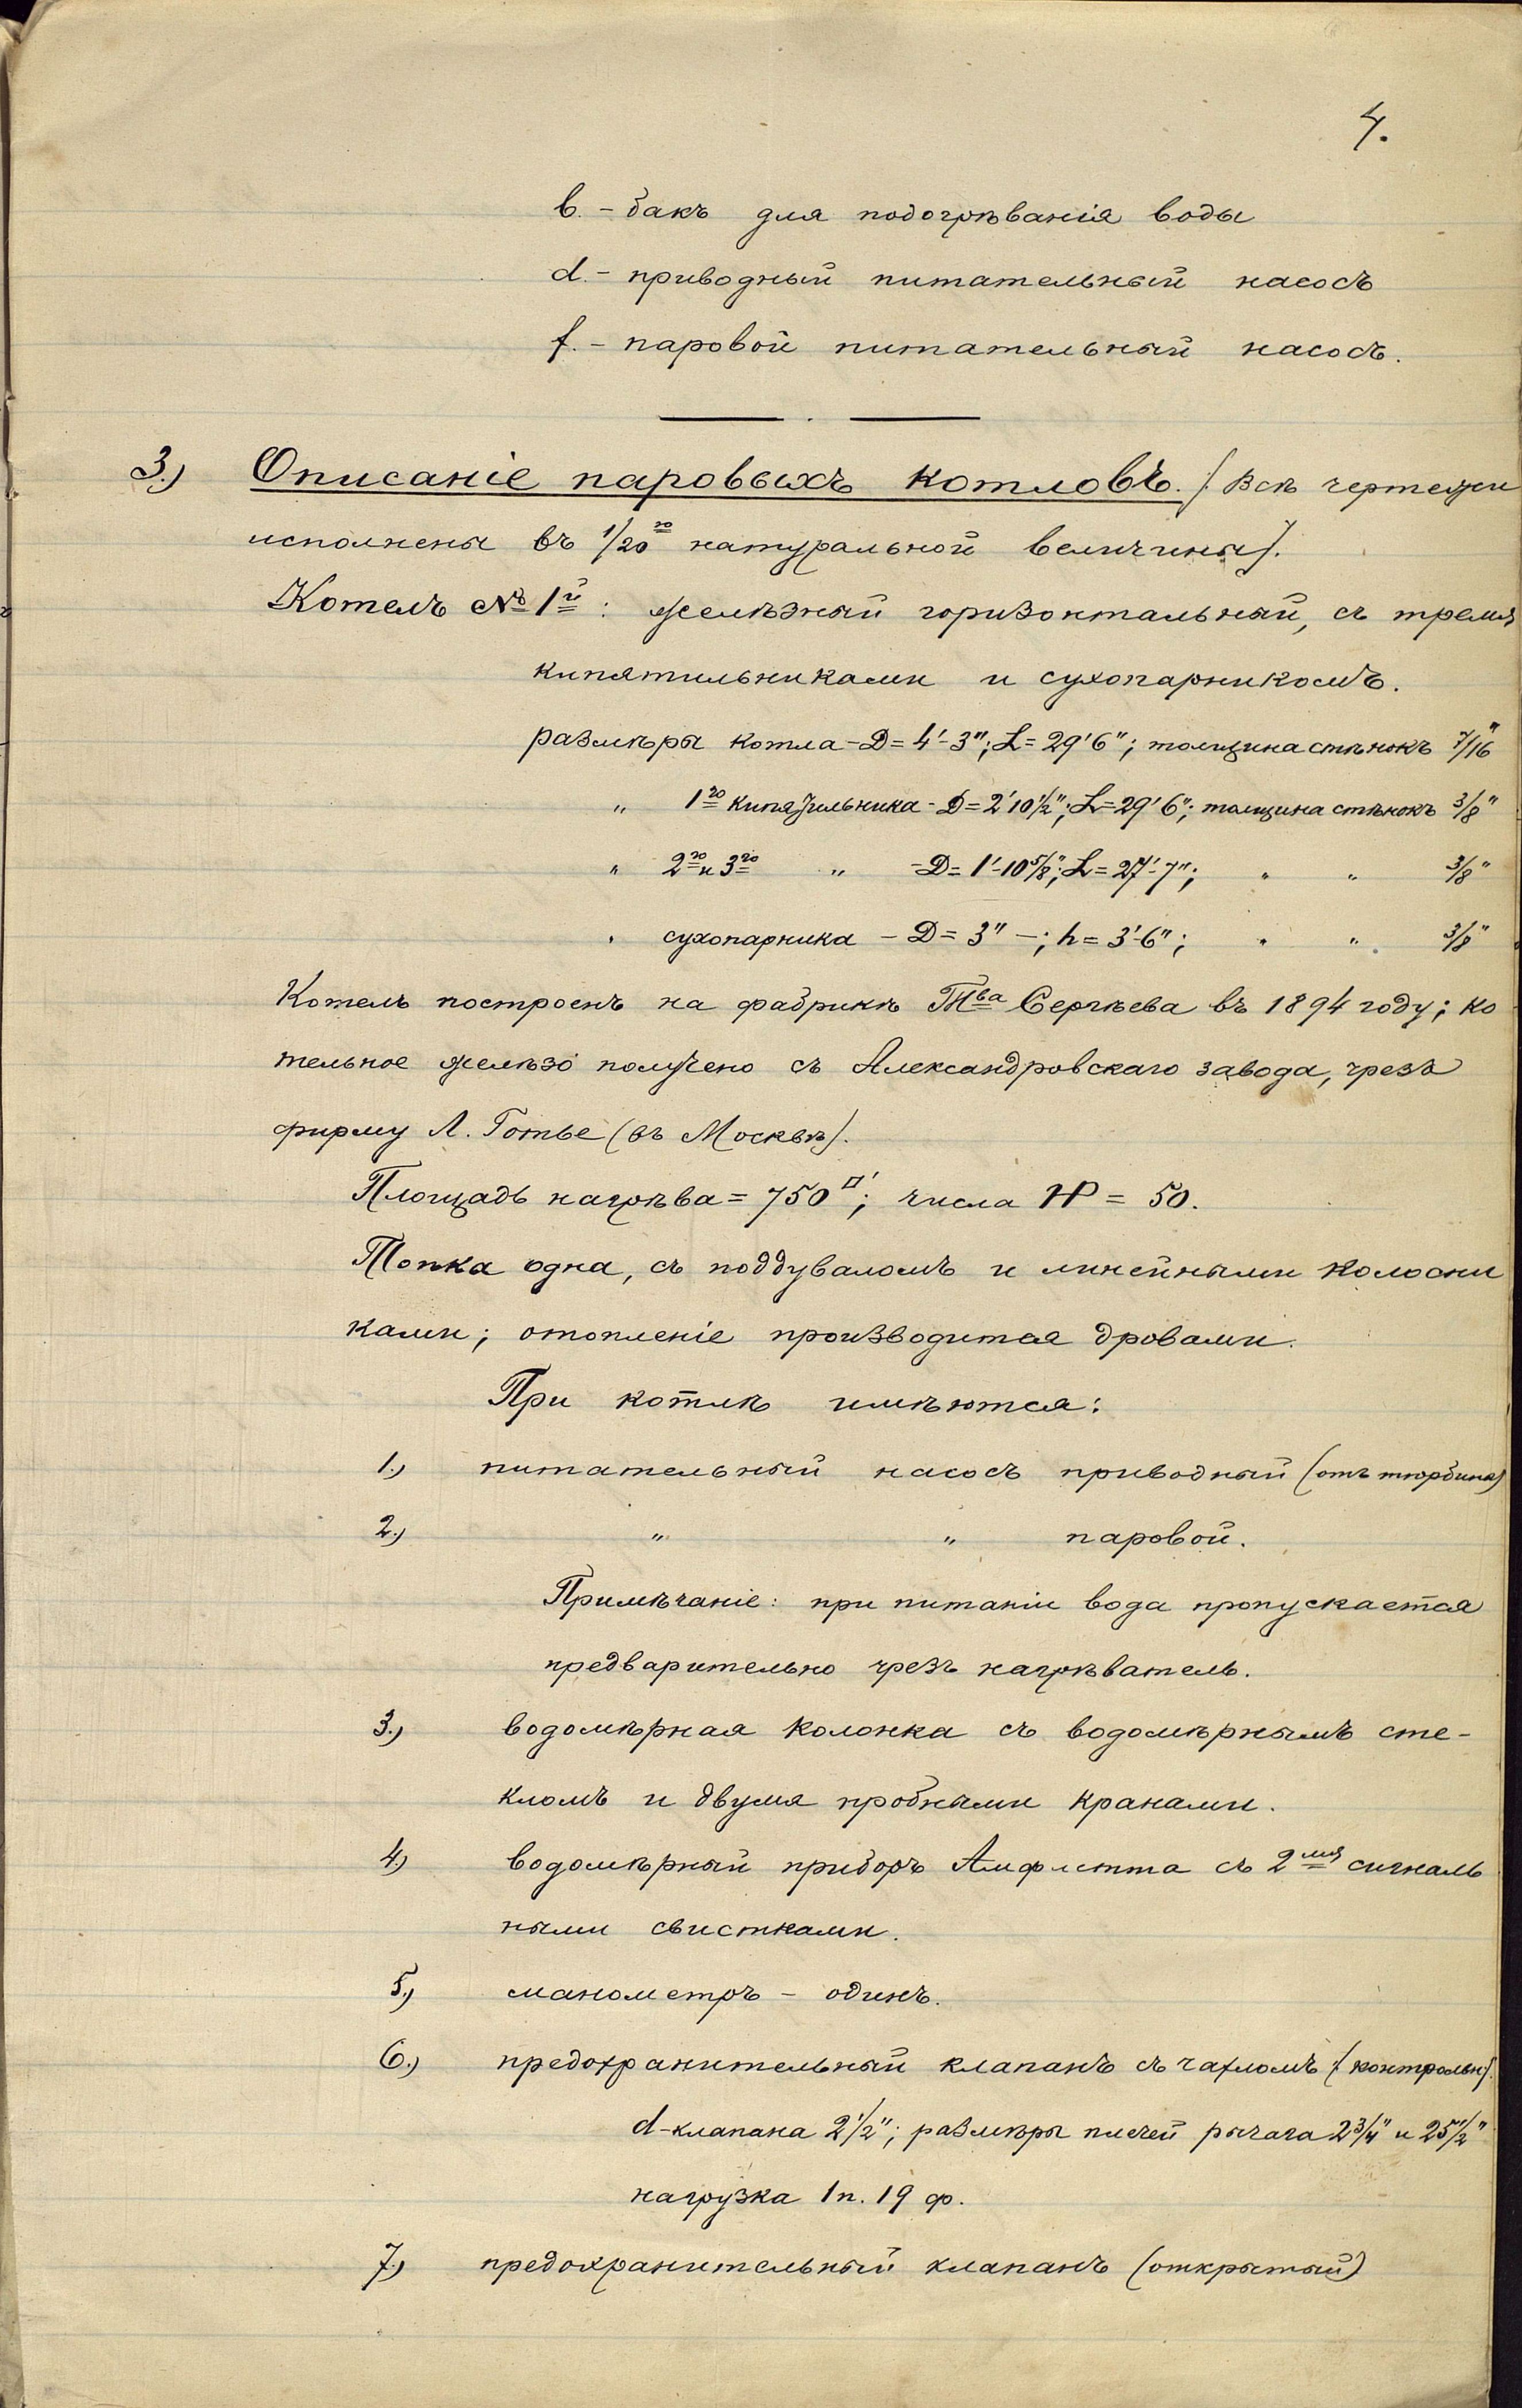 4.
b. – бакъ для подогрѣванія воды
d. – приводный питательный насосъ
f. – паровой питательный насосъ.
3.) Описаніе паровыхъ котловъ. /: Всѣ чертежи
исполнены въ 1/20го натуральной величины/.
Котелъ № 1й : желѣзный горизонтальный, съ тремя
кипятильниками и сухопарникомъ.
размѣры котла – D = 4'–3"; L = 29'6"; толщина стѣнокъ 7/16"
" 1го кипятильника – D = 2'10 1/2"; L = 29'6"; толщина стѣнокъ 3/8"
" 2го и 3го " – D = 1'–10 5/8"; L = 27'–7"; " " 3/8"
" сухопарника – D = 3" –; h = 3'–6"; " " 3/8"
Котелъ построенъ на фабрикѣ Т-ва Сергѣева въ 1894 году; ко
тельное желѣзо получено съ Александровскаго завода, чрезъ
фирму Л. Готье (въ Москвѣ).
Площадь нагрѣва = 750 □'; числа HP = 50.
Топка одна, съ поддуваломъ и линейными колосни
ками; отопленіе производится дровами.
При котлѣ имѣются:
1.) питательный насосъ приводный (отъ тюрбины)
2.) " " паровой.
Примѣчаніе: при питаніи вода пропускается
предварительно чрезъ нагрѣватель.
3.) водомѣрная колонка съ водомѣрнымъ сте-
кломъ и двумя пробными кранами.
4.) водомѣрный приборъ Амфлетта съ 2мя сигналь
ными свистками.
5.) манометръ – одинъ.
6.) предохранительный клапанъ съ чахломъ /контрольн/.
d – клапана 2 1/2"; размѣры плечей рычага 2 3/4" и 25 1/2"
нагрузка 1 п. 19 ф.
7.) предохранительный клапанъ (открытый)